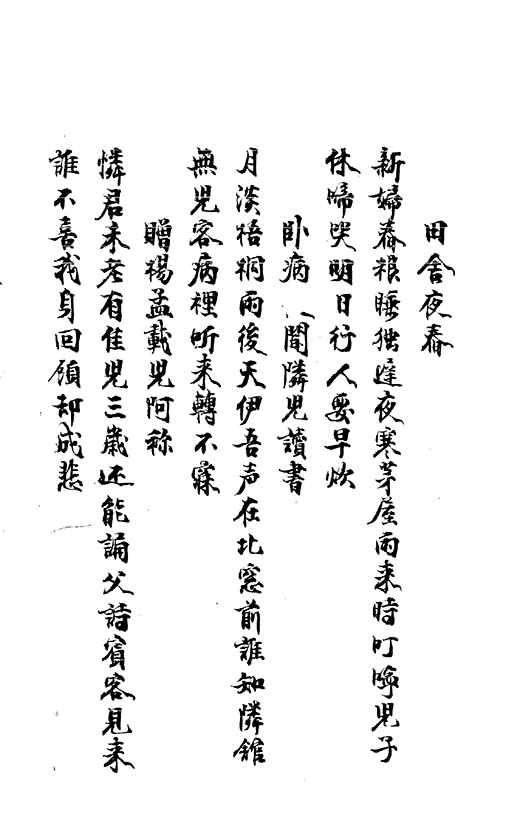 田舎夜舂
新婦舂粮睡独遅夜寒茅屋雨来時叮嚀児子
休啼哭明日行人要早炊
卧病聞隣児讀書
月淡梧桐雨後天伊吾声在北窓前誰知隣館
無児客病裡听来轉不寐
贈楊孟載児阿称
憐君未老有佳児三歳还能誦父詩賓客見来
誰不喜我身回顧却成悲